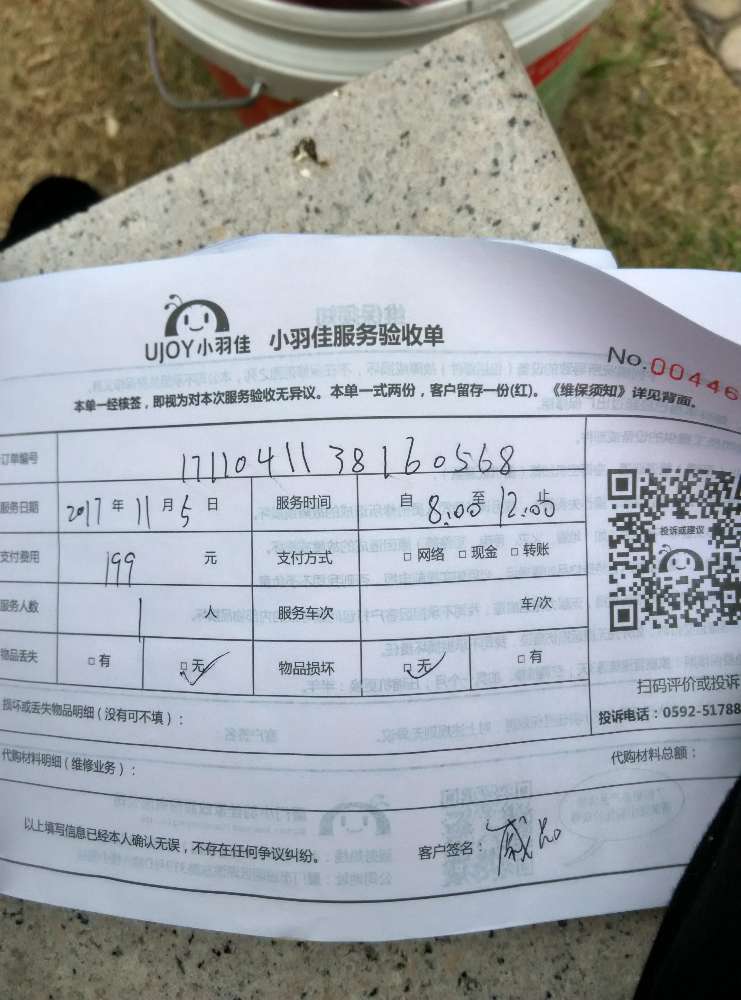 UJOY小羽佳 小羽佳服务验收单
No.00446
本单一经核签，即视为对本次服务验收无异议。本单一式两份，客户留存一份(红)。《维保须知》详见背面。
订单编号 1711041138160568
服务日期 2017年11月5日 服务时间 自8:00至12:00止
投诉或建议
支付费用 199 元 支付方式 □网络 □现金 □转账
服务人数 1 人 服务车次 车/次
物品丢失 □有 □无 ✓ 物品损坏 □无 ✓ □有
扫码评价或投诉
损坏或丢失物品明细（没有可不填）：
投诉电话：0592-51788
代购材料明细（维修业务）： 代购材料总额：
以上填写信息已经本人确认无误，不存在任何争议纠纷。 客户签名：